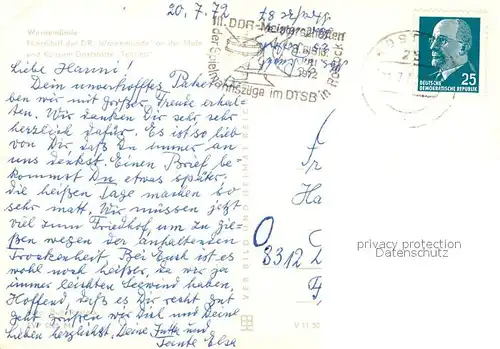 20. 7. 72
III. DDR-Meisterschaften
der Spielmannszüge im DTSB in Rostock
1972
ROSTOCK
25
DEUTSCHE
DEMOKRATISCHE REPUBLIK
25
Warnemünde
Liebe Hanni!
Dein unverhofftes Paket ha-
ben wir mit großer Freude erhal-
ten. Wir danken Dir sehr sehr
herzlich dafür. Es ist so lieb
von Dir, daß Du immer an
uns denkst. Einen Brief be-
kommst Du etwas später,
die heißen Tage machen so
sehr matt. Wir müssen jetzt
viel zum Friedhof, um zu gie-
ßen wegen der anhaltenden
Trockenheit. Bei Euch ist es
wohl noch heißer, da wir ja
immer leichten Seewind haben.
Hoffend, daß es Dir recht gut
geht grüßen wir Dich und Deine
Lieben herzlichst. Deine Jutta und
Tante Elsa
VEB BILD UND HEIMAT REICHENBACH
V 11 50
Fr
Ha
O
3312
privacy protection
Datenschutz